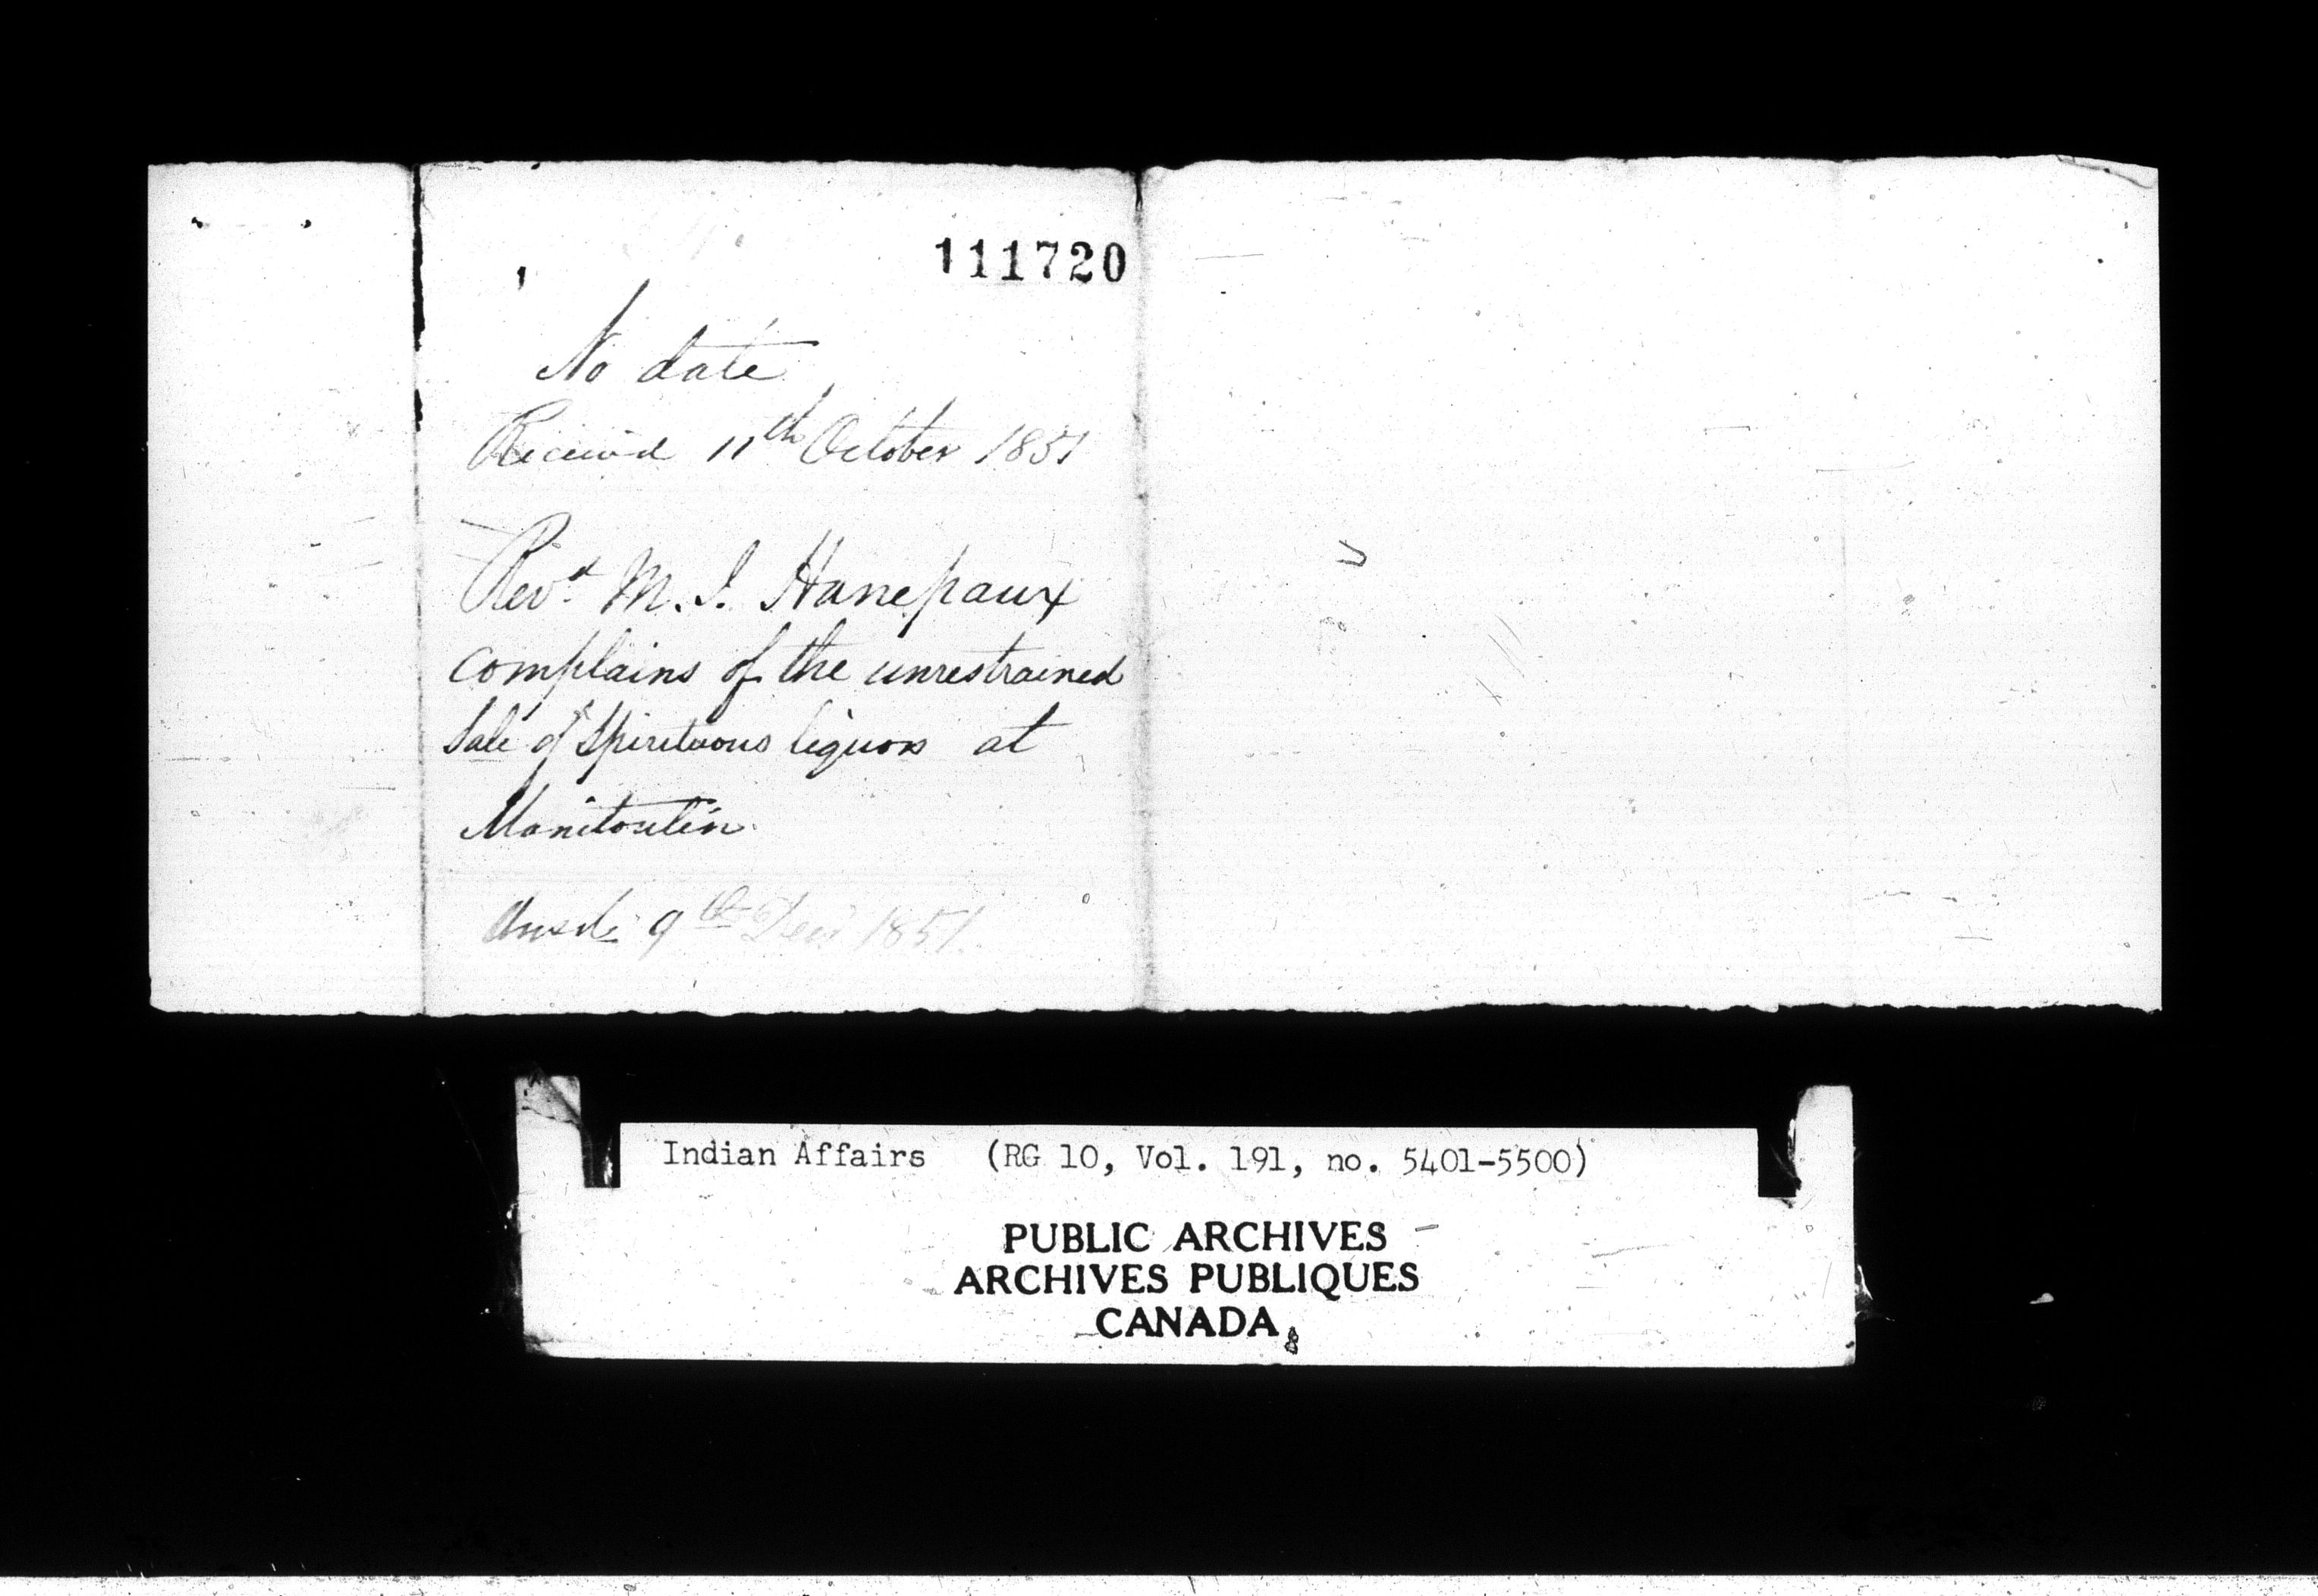 111720
No date
Received 11th October 1851
Revd. M. I. Hanepaux
complains of the unrestrained
Sale of Spirituous liquors at
Manitoulin.
Answd. 9th Decr 1851.
Indian Affairs (RG 10, Vol. 191, no. 5401-5500)
PUBLIC ARCHIVES
ARCHIVES PUBLIQUES
CANADA